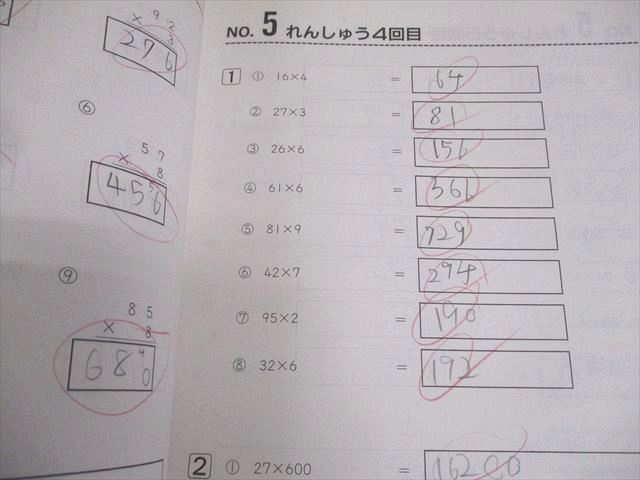 92
× 3
276
⑥
57
× 8
45⁵6
⑨
85
× 8
68⁴0
NO. 5 れんしゅう4回目
1 ① 16×4 = 64
② 27×3 = 81
③ 26×6 = 156
④ 61×6 = 366
⑤ 81×9 = 729
⑥ 42×7 = 294
⑦ 95×2 = 190
⑧ 32×6 = 192
2 ① 27×600 = 16200